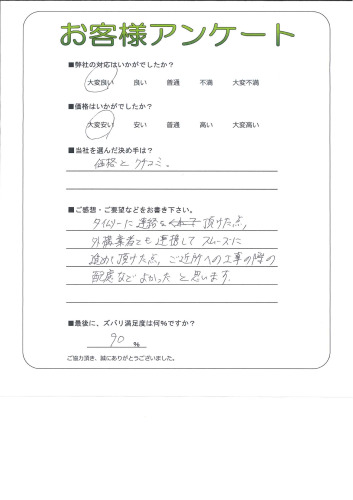 お客様アンケート
■弊社の対応はいかがでしたか?
大変良い 良い 普通 不満 大変不満
■価格はいかがでしたか?
大変安い 安い 普通 高い 大変高い
■当社を選んだ決め手は?
価格と クチコミ。
■ご感想・ご要望などをお書き下さい。
タイムリーに連絡を 頂けた点,
外構業者とも連携して スムーズに
進めて頂けた点, ご近所への工事の際の
配慮など よかった と思います.
■最後に、ズバリ満足度は何%ですか?
90 %
ご協力頂き、誠にありがとうございました。